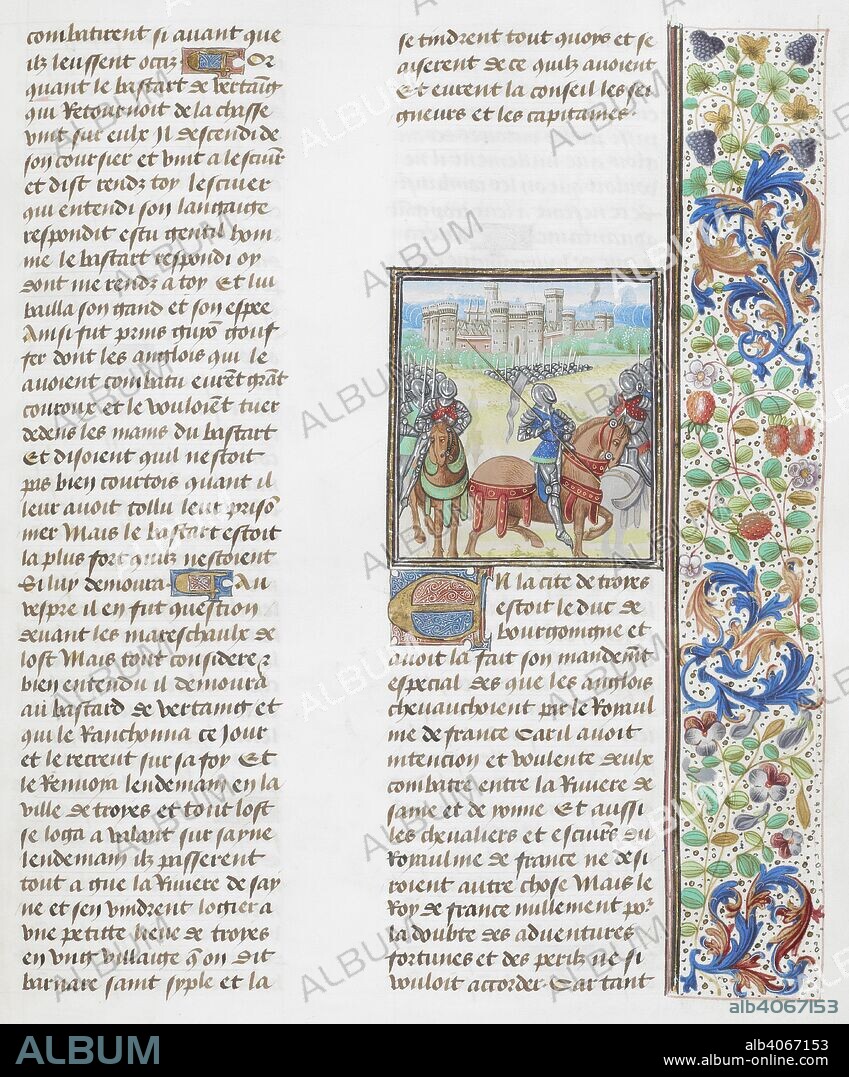 combatirent si auant que
ilz leussent occiz Or
quant le bastart de vertaig
qui Retournoit de la chasse
vint sur eulx Il descendi de
son coursier et vint a lescuier
et dist rendz toy lescuier
qui entendi son langaige
respondit estu gentil hom
me le bastart respondi oy
dont me rendz a toy Et lui
bailla son gand et son espee
Ainsi fut prins guyon gouf
fer dont les anglois qui le
auoient combatu eurent grant
couroux et le vouloient tuer
dedens les mains du bastart
Et disoient quil nestoit
pas bien courtois quant il
leur auoit tollu leur prison
mer Mais le bastart estoit
la plus fort quilz nestoient
Si luy demoura Au
vespre il en fut question
deuant les mareschaulx de
lost Mais tout considere z
bien entendu il demoura
au bastard de vertaing et
qui le Ranchonna ce Jour
et le recreut sur sa foy Et
le Renuoya lendemain en la
ville de troyes et tout lost
se loga a valant sur sayne
lendemain ilz passerent
tout a gue la Riuiere de say
ne et sen vindrent logier a
vne petitte lieue de troyes
en vng villaige qon dit
barnare saint syple et la
se tindrent tout quoys et se
aiserent de ce quilz auoient
Et eurent la conseil les sei
gneurs et les capitaines
En la cite de troyes
estoit le duc de
bourgoingne et
auoit la fait son mandemt
especial des que les anglois
cheuauchoient par le Royaul
me de france Car il auoit
intention et voulente deulx
combatre entre la Riuiere de
saine et de yonne Et aussi
les cheualiers et escuiers du
Royaulme de france ne desi
roient autre chose Mais le
Roy de france nullement por
la doubte des aduentures
fortunes et des perilz ne si
vouloit accorder Car tant
alb4067153
ALBUM
alb4067153
www.album-online.com